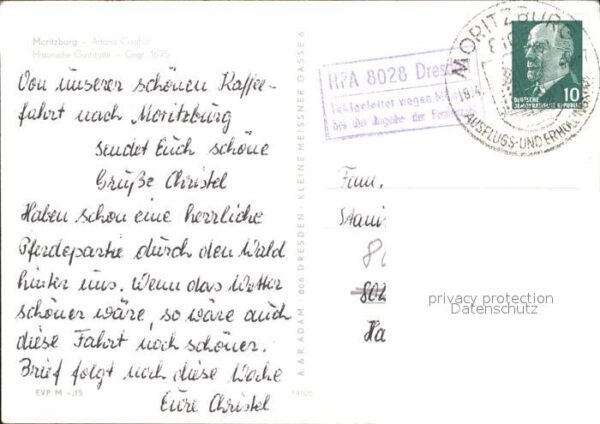 Moritzburg – Adams Gasthof
Historische Gaststätte – Gegr. 1675
Von unserer schönen Kaffee-
fahrt nach Moritzburg
sendet Euch schöne
Grüße Christel
Haben schon eine herrliche
Pferdepartie durch den Wald
hinter uns. Wenn das Wetter
schöner wäre, so wäre auch
diese Fahrt noch schöner.
Brief folgt noch diese Woche
Eure Christel
EVP M –,15
A. & R. ADAM · 806 DRESDEN · KLEINE MEISSNER GASSE 6
HPA 8028 Dresd
Fehlgeleitet wegen
bei der Angabe der
MORITZBURG
19.4.
AUSFLUGS- UND ERHOL
DEUTSCHE
DEMOKRATISCHE REPUBLIK
10
Fam.
802
Ha
privacy protection
Datenschutz